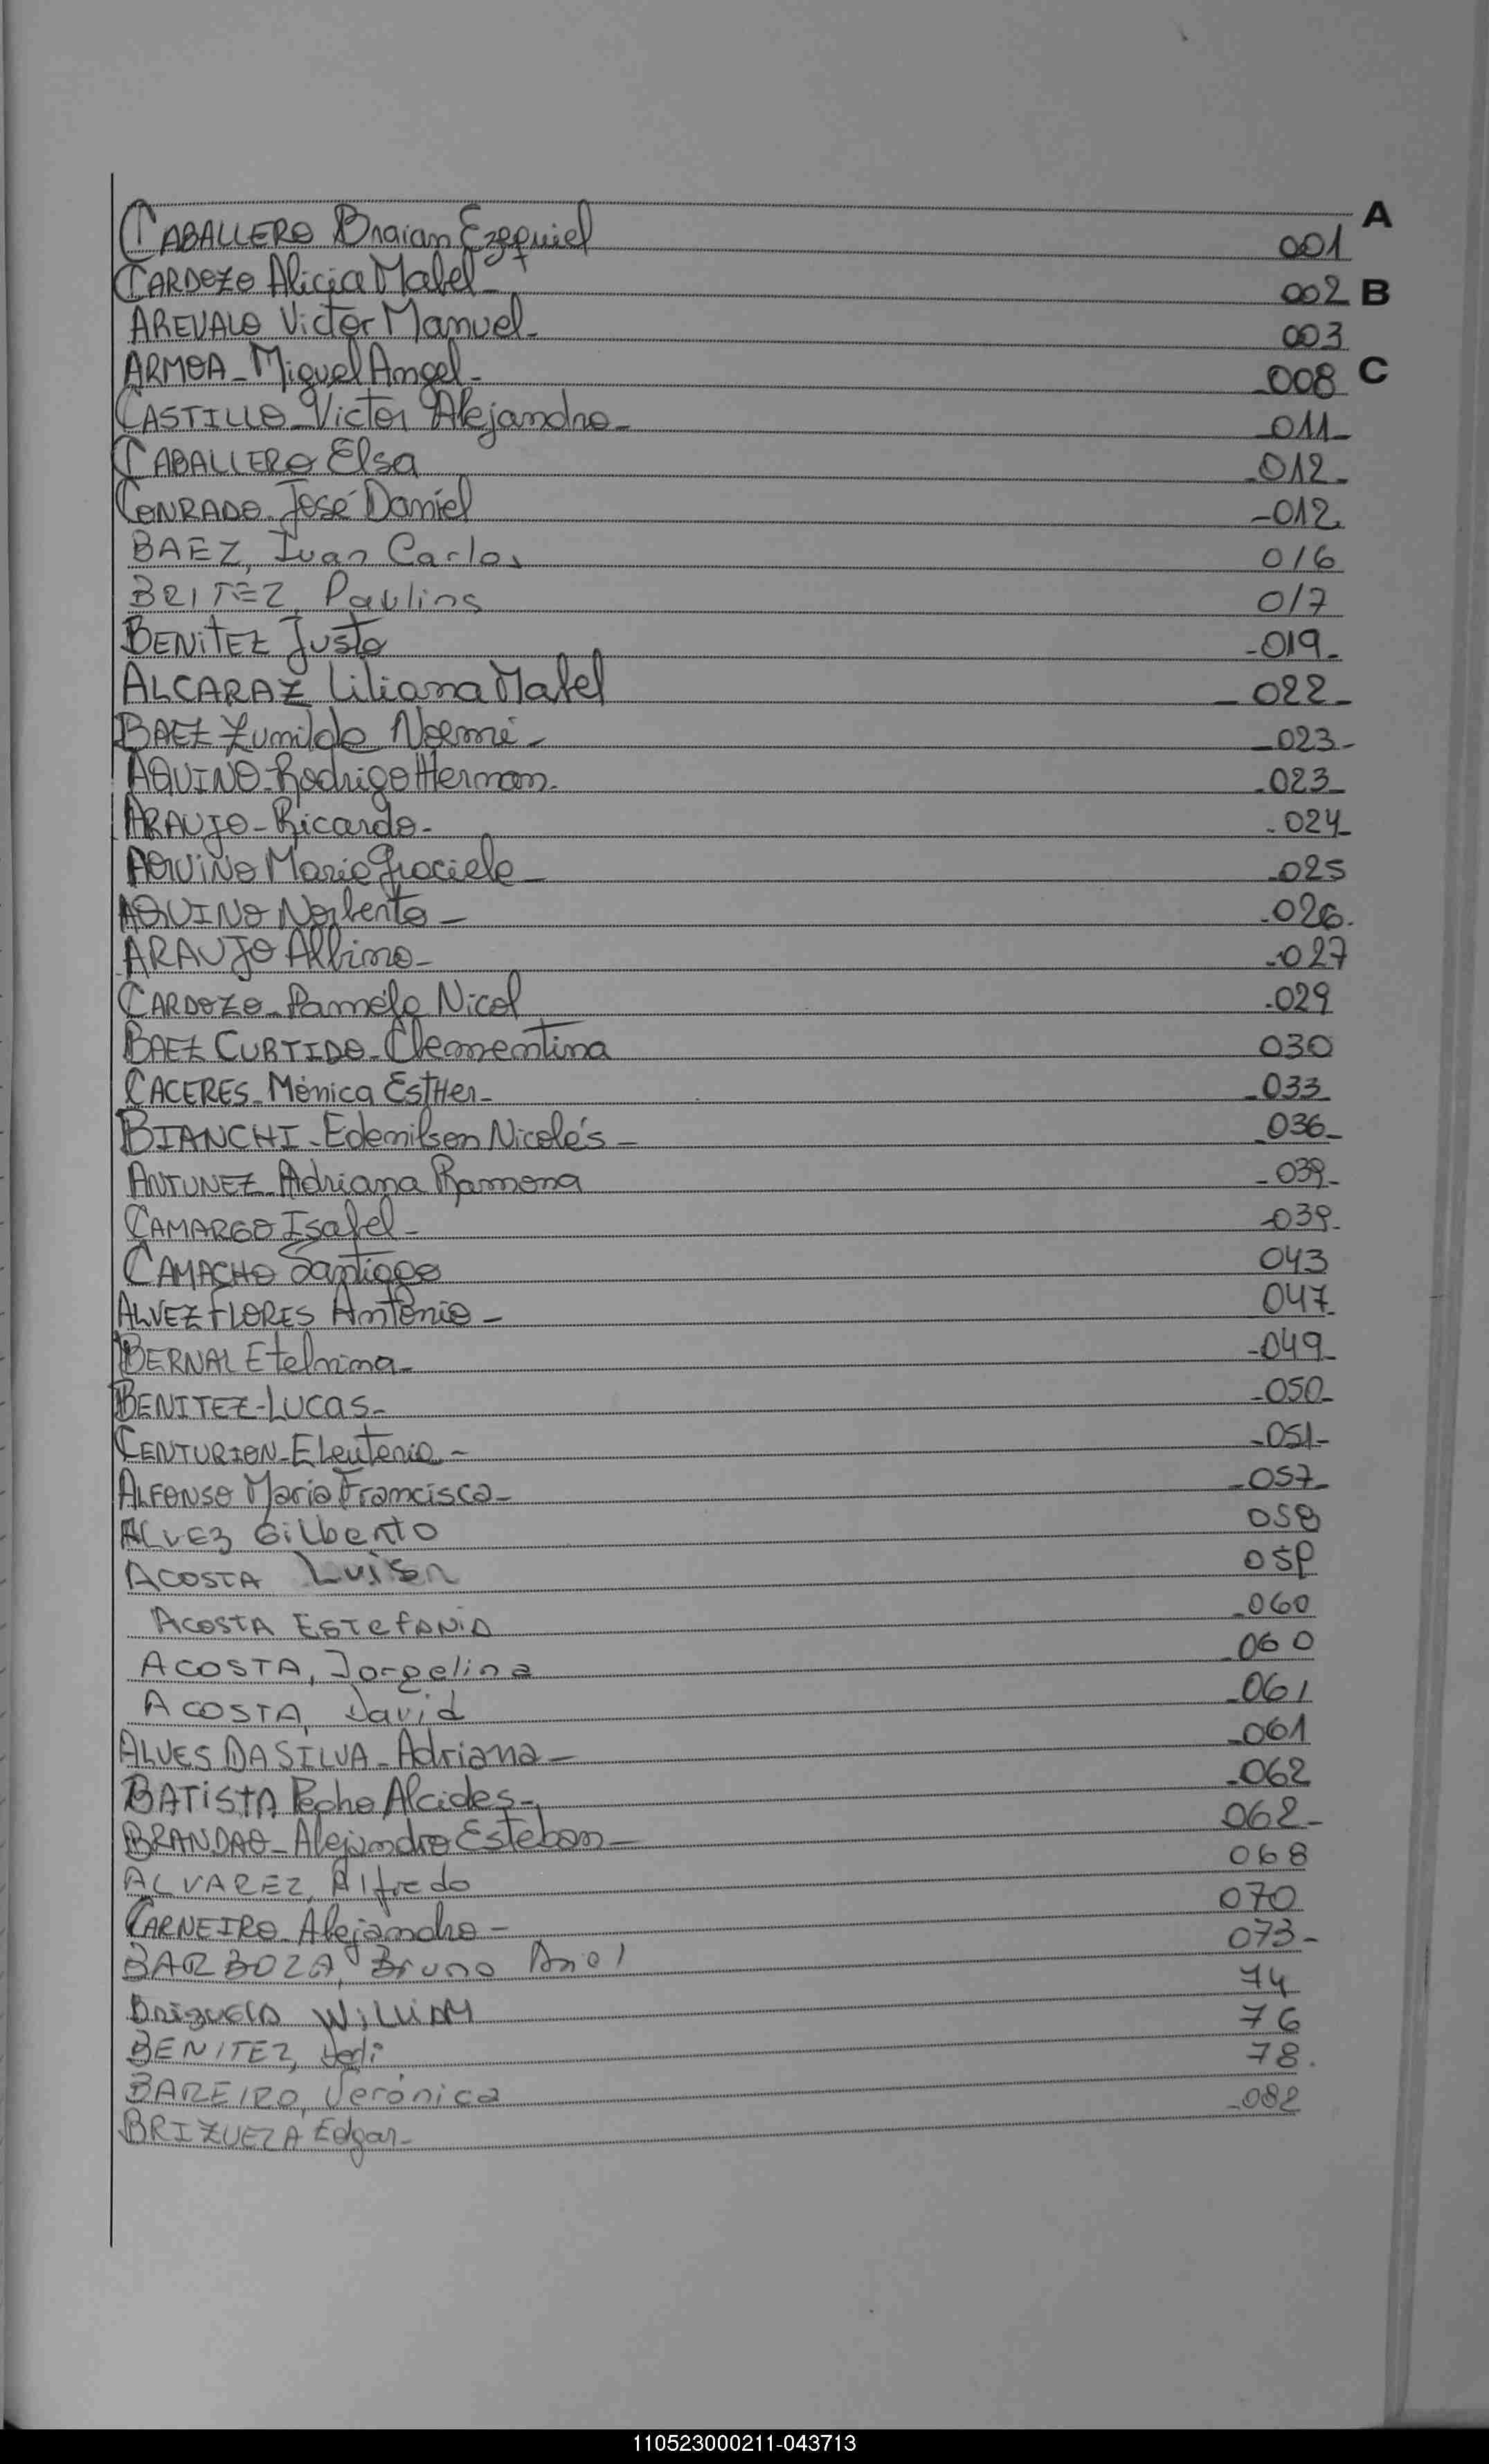 A
CABALLERO Braian Ezequiel 001
CARDOZO Alicia Mabel - 002 B
AREVALO Victor Manuel - 003
ARMOA - Miguel Angel - 008 C
CASTILLO - Victor Alejandro - 011 -
CABALLERO Elsa - 012 -
CONRADO - José Daniel - 012
BAEZ, Ivan Carlos 016
BRITEZ, Paulina 017
BENITEZ Justo - 019 -
ALCARAZ Liliana Mabel - 022 -
BAEZ Zunilda Noemí - - 023 -
AQUINO - Rodrigo Hernan - - 023 -
ARAUJO - Ricardo - - 024 -
AQUINO Maria Graciela - - 025
AQUINO Norberto - - 026 -
ARAUJO Albino - - 027
CARDOZO - Pamela Nicol - 029
BAEZ CURTIDO - Clementina 030
CACERES - Mónica Esther - - 033
BIANCHI - Edemilson Nicolás - - 036 -
ANTUNEZ - Adriana Ramona - 039 -
CAMARGO Isabel - - 039 -
CAMACHO Santiago 043
ALVEZ FLORES Antonio - 047
BERNAL Etelvina - - 049 -
BENITEZ - Lucas - - 050 -
CENTURION - Eleuteria - - 051 -
ALFONSO Maria Francisca - - 057 -
ALVEZ Gilberto 058
ACOSTA Luisa 059
ACOSTA ESTEFANIA - 060
ACOSTA, Jorgelina - 060
ACOSTA, David - 061
ALVES DA SILVA - Adriana - - 061
BATISTA Pedro Alcides - - 062
BRANDAO - Alejandro Esteban - 062 -
ALVAREZ, Alfredo 068
CARNEIRO - Alejandro - 070
BARBOZA, Bruno Ariel 073 -
BRIZUELA WILLIAM 74
BENITEZ, 76
BAREIRO, Verónica 78.
BRIZUELA Edgar - - 082
110523000211-043713